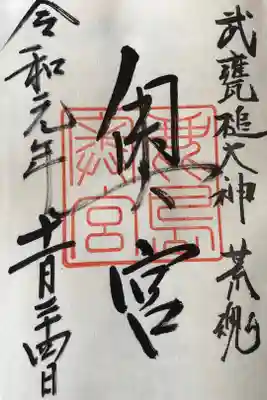 武甕槌大神 荒魂
奥宮
鹿島
奥宮
令和元年十一月二十四日